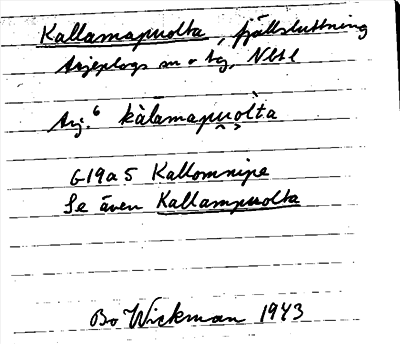 Kallamapuolta, fjällsluttning
Arjeplogs sn o tg, Nbtl
Arj.⁶ kàlamapu̯ò̭lta
G19a5 Kallomnipe
Se även Kallampuolta
Bo Wickman 1943